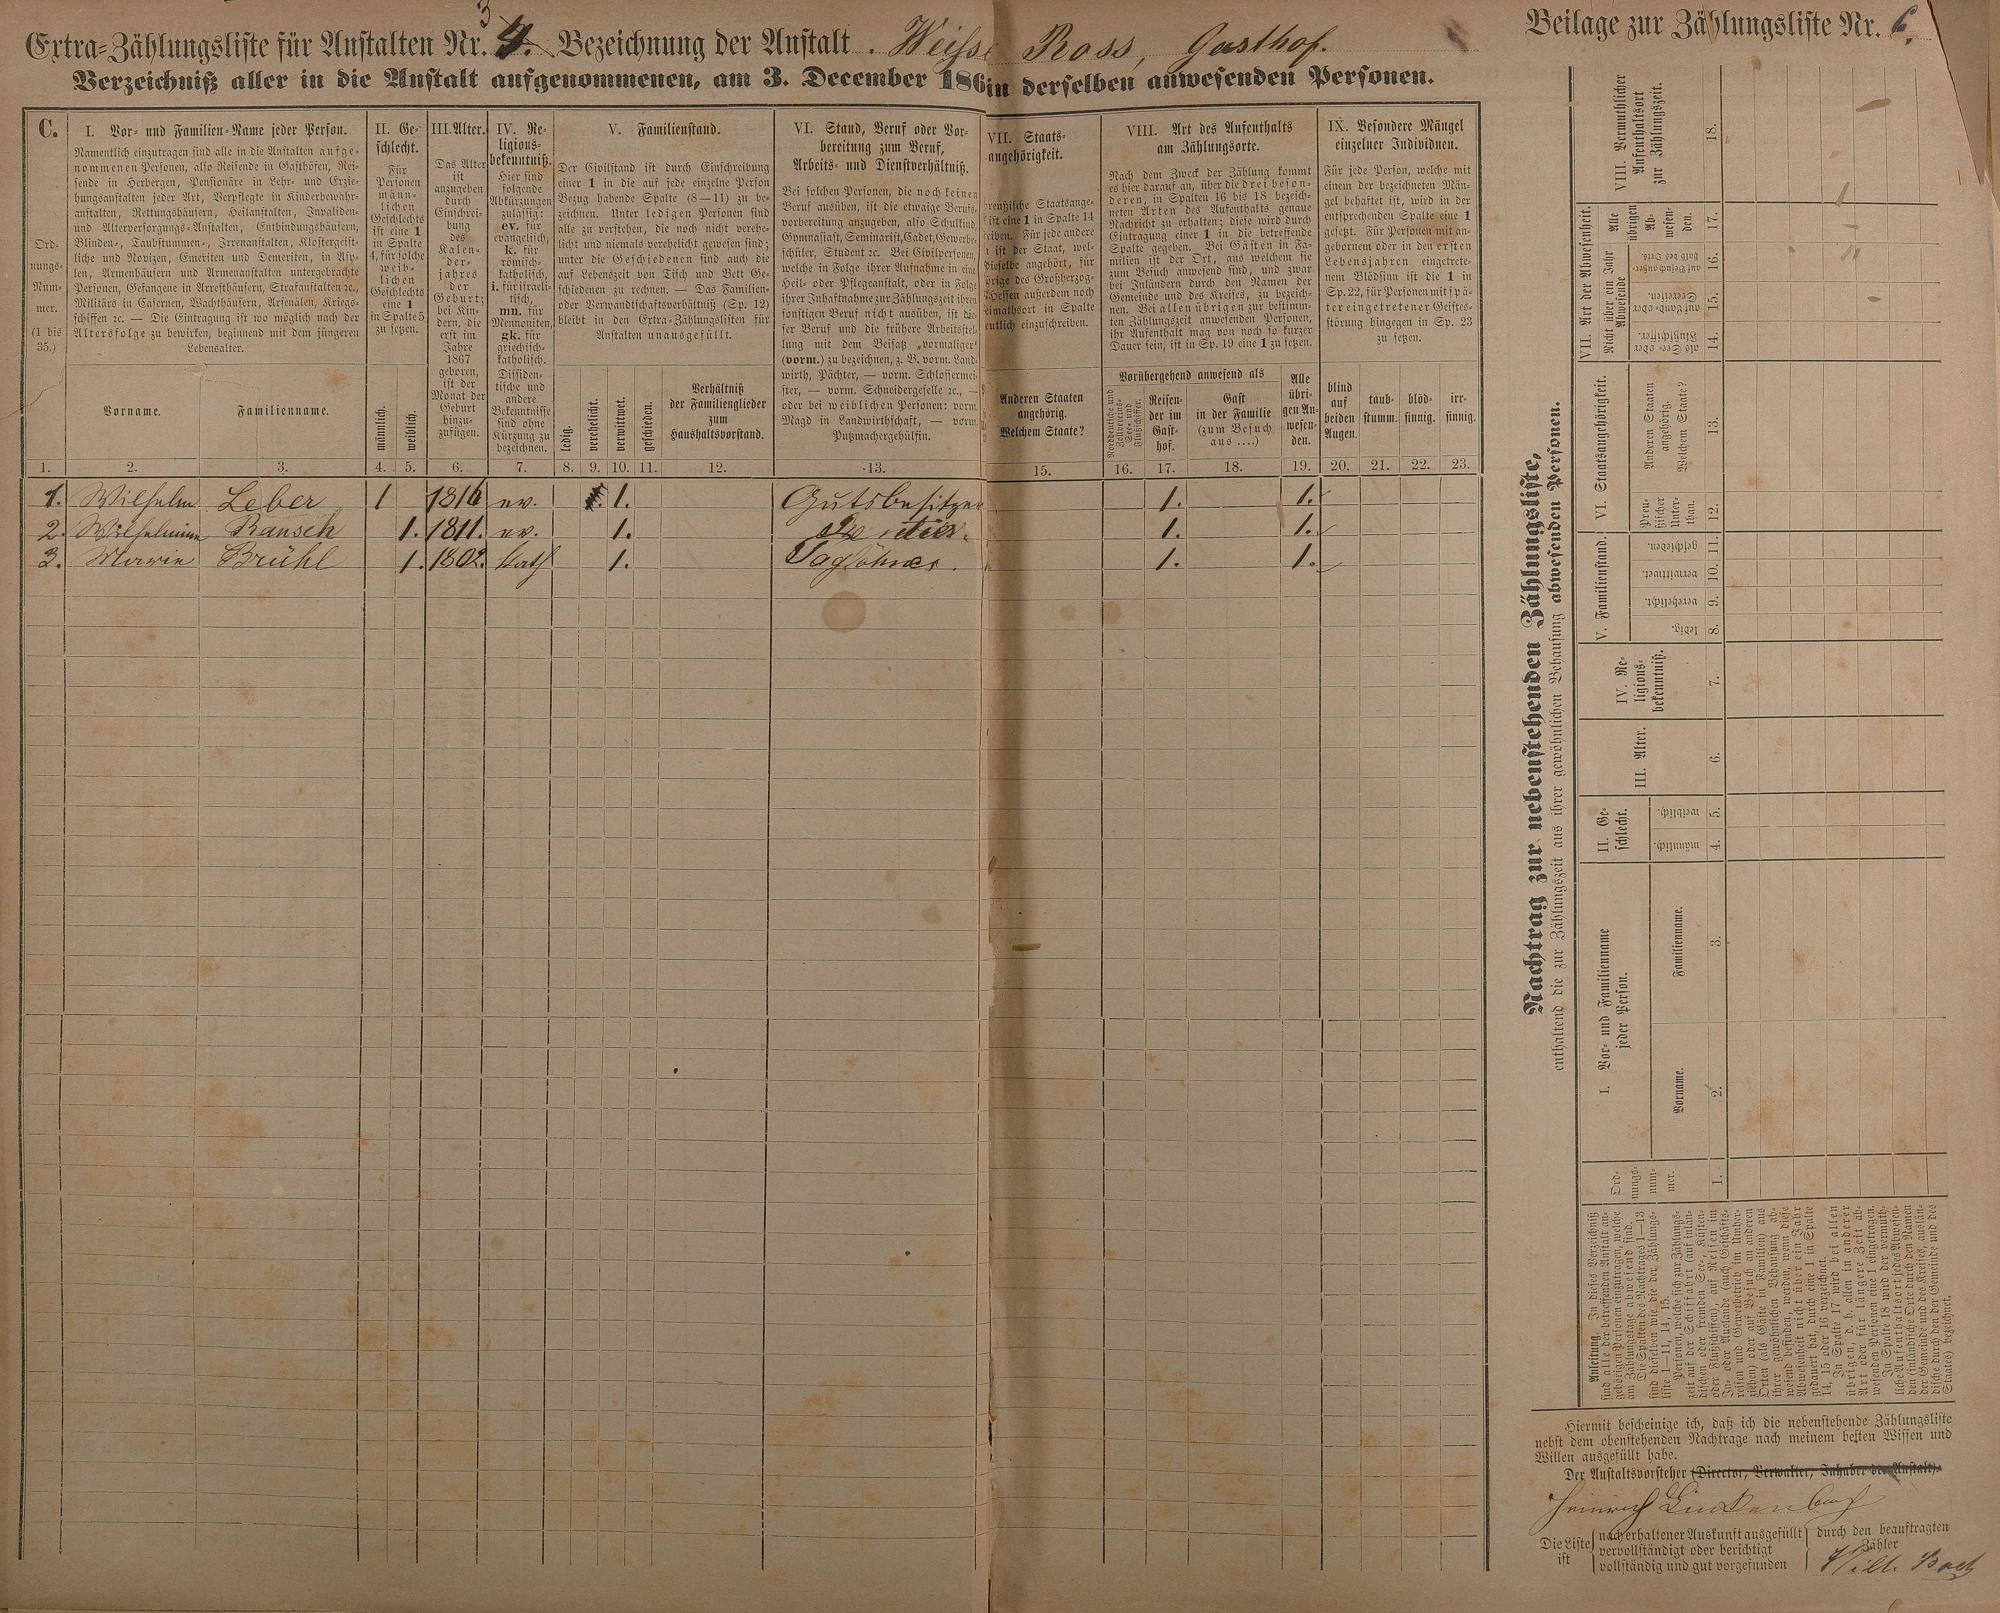 Extra-Zählungsliste für Anstalten Nr. 3 4. Bezeichnung der Anstalt. Weisses Ross, Gasthof.
Verzeichniß aller in die Anstalt aufgenommenen, am 3. December 186 in derselben anwesenden Personen.
C.
Ord-
nungs-
Num-
mer.
(1 bis
35.)
I. Vor- und Familien-Name jeder Person.
Namentlich einzutragen sind alle in die Anstalten aufge-
nommenen Personen, also Reisende in Gasthöfen, Rei-
sende in Herbergen, Pensionäre in Lehr- und Erzie-
hungsanstalten jeder Art, Verpflegte in Kinderbewahr-
anstalten, Rettungshäusern, Heilanstalten, Invaliden-
und Altersversorgungs-Anstalten, Entbindungshäusern,
Blinden-, Taubstummen-, Irrenanstalten, Klostergeist-
liche und Novizen, Emeriten und Demeriten, in Asy-
len, Armenhäusern und Armenanstalten untergebrachte
Personen, Gefangene in Arresthäusern, Strafanstalten ꝛc.,
Militärs in Casernen, Wachthäusern, Arsenälen, Kriegs-
schiffen ꝛc. — Die Eintragung ist wo möglich nach der
Altersfolge zu bewirken, beginnend mit dem jüngeren
Lebensalter.
Vorname.
Familienname.
II. Ge-
schlecht.
Für
Personen
männ-
lichen
Geschlechts
ist eine 1
in Spalte
4, für solche
weib-
lichen
Geschlechts
eine 1
in Spalte 5
zu setzen.
männlich.
weiblich.
III. Alter.
Das Alter
ist
anzugeben
durch
Einschrei-
bung
des
Kalen-
der-
jahres
der
Geburt;
bei Kin-
dern, die
erst im
Jahre
1867
geboren,
ist der
Monat der
Geburt
hinzu-
zufügen.
IV. Re-
ligions-
bekenntniß.
Hier sind
folgende
Abkürzungen
zulässig:
ev. für
evangelisch,
k. für
römisch-
katholisch,
i. für israeli-
tisch,
mn. für
Mennoniten,
gk. für
griechisch-
katholisch.
Dissiden-
tische und
andere
Bekenntnisse
sind ohne
Kürzung zu
bezeichnen.
V. Familienstand.
Der Civilstand ist durch Einschreibung
einer 1 in die auf jede einzelne Person
Bezug habende Spalte (8—11) zu be-
zeichnen. Unter ledigen Personen sind
alle zu verstehen, die noch nicht verehe-
licht und niemals verehelicht gewesen sind;
unter die Geschiedenen sind auch die
auf Lebenszeit von Tisch und Bett Ge-
schiedenen zu rechnen. — Das Familien-
oder Verwandtschaftsverhältniß (Sp. 12)
bleibt in den Extra-Zählungslisten für
Anstalten unausgefüllt.
ledig.
verehelicht.
verwittwet.
geschieden.
Verhältniß
der Familienglieder
zum
Haushaltsvorstand.
VI. Stand, Beruf oder Vor-
bereitung zum Beruf,
Arbeits- und Dienstverhältniß.
Bei solchen Personen, die noch keinen
Beruf ausüben, ist die etwaige Berufs-
vorbereitung anzugeben, also Schulkind,
Gymnasiast, Seminarist, Cadet, Gewerbe-
schüler, Student ꝛc. Bei Civilpersonen,
welche in Folge ihrer Aufnahme in eine
Heil- oder Pflegeanstalt, oder in Folge
ihrer Inhaftnahme zur Zählungszeit ihren
sonstigen Beruf nicht ausüben, ist die-
ser Beruf und die frühere Arbeitsstel-
lung mit dem Beisatz „vormaliger“
(vorm.) zu bezeichnen, z. B. vorm. Land-
wirth, Pächter, — vorm. Schlossermei-
ster, — vorm. Schneidergeselle ꝛc., —
oder bei weiblichen Personen: vorm.
Magd in Landwirthschaft, — vorm.
Putzmachergehülfin.
VII. Staats-
angehörigkeit.
preußische Staatsange-
ist eine 1 in Spalte 14
eiben. Für jede andere
ist der Staat, wel-
dieselbe angehört, für
örige des Großherzog-
Hessen außerdem noch
eimathsort in Spalte
entlich einzuschreiben.
Anderen Staaten
angehörig.
Welchem Staate?
VIII. Art des Aufenthalts
am Zählungsorte.
Nach dem Zweck der Zählung kommt
es hier darauf an, über die drei beson-
deren, in Spalten 16 bis 18 bezeich-
neten Arten des Aufenthalts genaue
Nachricht zu erhalten; diese wird durch
Eintragung einer 1 in die betreffende
Spalte gegeben. Bei Gästen in Fa-
milien ist der Ort, aus welchem sie
zum Besuch anwesend sind, und zwar
bei Inländern durch den Namen der
Gemeinde und des Kreises, zu bezeich-
nen. Bei allen übrigen zur bestimm-
ten Zählungszeit anwesenden Personen,
ihr Aufenthalt mag von noch so kurzer
Dauer sein, ist in Sp. 19 eine 1 zu setzen.
Vorübergehend anwesend als
Norddeutsche und
Zollvereins-
See- und
Flußschiffer.
Reisen-
der im
Gast-
hof.
Gast
in der Familie
(zum Besuch
aus ....)
Alle
übri-
gen An-
wesen-
den.
IX. Besondere Mängel
einzelner Individuen.
Für jede Person, welche mit
einem der bezeichneten Män-
gel behaftet ist, wird in der
entsprechenden Spalte eine 1
gesetzt. Für Personen mit an-
geborenem oder in den ersten
Lebensjahren eingetrete-
nem Blödsinn ist die 1 in
Sp. 22, für Personen mit spä-
ter eingetretener Geistes-
störung hingegen in Sp. 23
zu setzen.
blind
auf
beiden
Augen.
taub-
stumm.
blöd-
sinnig.
irr-
sinnig.
1. 2. 3. 4. 5. 6. 7. 8. 9. 10. 11. 12. 13. 15. 16. 17. 18. 19. 20. 21. 22. 23.
1. Wilhelm Leber 1 1816 ev. 1. Gutsbesitzer 1. 1.
2. Wilhelmine Rausch 1. 1811. ev. 1. 1. 1.
3. Marie Brühl 1. 1802. kath 1. Taglöhner. 1. 1.
Beilage zur Zählungsliste Nr. 6.
Nachtrag zur nebenstehenden Zählungsliste,
enthaltend die zur Zählungszeit aus ihrer gewöhnlichen Behausung abwesenden Personen.
Anleitung. In dieses Verzeichniß
sind alle der betreffenden Anstalt an-
gehörigen Personen einzutragen, welche
am Zählungstage abwesend sind.
Die Spalten des Nachtrages 1—13
sind dieselben wie die der Zählungs-
liste 1—11, 14, 15.
Personen, welche sich zur Zählungs-
zeit auf der Schifffahrt (auf inlän-
dischen oder fremden See-, Küsten-
oder Flußschiffen), auf Reisen im
In- oder Auslande (auch Geschäfts-
reisen und Gewerbetrieb im Umher-
ziehen) oder auf Besuch an anderen
Orten (als Gäste in Familien) aus
ihrer gewöhnlichen Behausung ab-
wesend befinden, werden, wenn diese
Abwesenheit nicht über ein Jahr
gedauert hat, durch eine 1 in Spalte
14, 15 oder 16 verzeichnet.
In Spalte 17 wird bei allen
übrigen, d. h. allen in anderer
Art oder für längere Zeit ab-
wesenden Personen eine 1 eingetragen.
In Spalte 18 wird der vermuth-
liche Aufenthaltsort jedes Abwesen-
den (inländische Orte durch den Namen
der Gemeinde und des Kreises, auslän-
dische durch den der Gemeinde und des
Staates) bezeichnet.
Ord-
nungs-
num-
mer.
I. Vor- und Familienname
jeder Person.
Vorname.
Familienname.
II. Ge-
schlecht.
männlich.
weiblich.
III. Alter.
IV. Re-
ligions-
bekenntniß.
V. Familienstand.
ledig.
verehelicht.
verwittwet.
geschieden.
VI. Staatsangehörigkeit.
Preu-
ßischer
Unter-
than.
Anderen Staaten
angehörig.
Welchem Staate?
VII. Art der Abwesenheit.
Nicht über ein Jahr
Abwesende
als See- oder
Flußschiffer.
auf Land- oder
Seereisen.
auf Besuch außer-
halb des Orts.
Alle
übrigen
Ab-
wesen-
den.
VIII. Vermuthlicher
Aufenthaltsort
zur Zählungszeit.
1. 2. 3. 4. 5. 6. 7. 8. 9. 10. 11. 12. 13. 14. 15. 16. 17. 18.
Hiermit bescheinige ich, daß ich die nebenstehende Zählungsliste
nebst dem obenstehenden Nachtrage nach meinem besten Wissen und
Willen ausgefüllt habe.
Der Anstaltsvorsteher (Director, Verwalter, Inhaber der Anstalt).
Heinrich Linkenbach
Die Liste
ist
nach erhaltener Auskunft ausgefüllt
vervollständigt oder berichtigt
vollständig und gut vorgefunden
durch den beauftragten
Zähler
Wilh. Bach